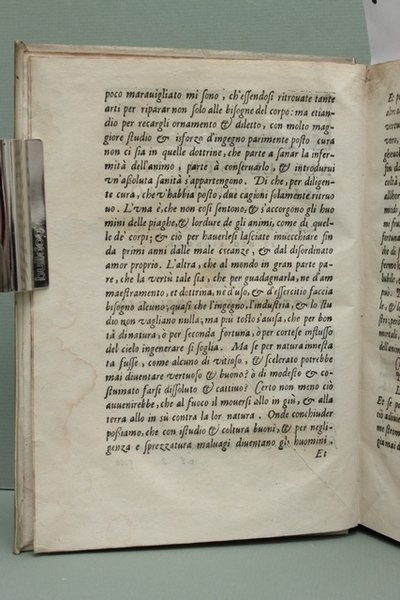 poco maravigliato mi sono, ch'essendosi ritrouate tante
arti per riparar non solo alle bisogne del corpo: ma etian-
dio per recargli ornamento & diletto, con molto mag-
giore studio & isforzo d'ingegno parimente posto cura
non ci sia in quelle dottrine, che parte a sanar la infer-
mità dell'animo, parte à conseruarlo, & introdurui
un'assoluta sanità s'appartengono. Di che, per diligen-
te cura, che v'habbia posto, due cagioni solamente ritruo
uo. L'una è, che non così sentono, & s'accorgono gli huo
mini delle piaghe, & lordure de gli animi, come di quel-
le de' corpi; & ciò per hauerlesi lasciate inuecchiare sin
da primi anni dalle male creanze, & dal disordinato
amor proprio. L'altra, che al mondo in gran parte pa-
re, che la vertù tale sia, che per guadagnarla, ne d'am
maestramento, et dottrina, ne d'uso, & d'essercitio faccia
bisogno alcuno; quasi che l'ingegno, l'industria, & lo stu
dio non vagliano nulla; ma piu tosto s'ausa, che per bon
tà di natura, ò per seconda fortuna, ò per cortese influsso
del cielo ingenerare si soglia. Ma se per natura innesta
ta fusse, come alcuno di vitioso, & scelerato potrebbe
mai diuentare vertuoso & buono? ò di modesto & co-
stumato farsi dissoluto & cattiuo? Certo non meno ciò
auuenirebbe, che al fuoco il mouersi allo in giù, & alla
terra allo in sù contra la lor natura. Onde conchiuder
possiamo, che con istudio & coltura buoni, & per negli-
genza e sprezzatura maluagi diuentano gli huomini.
Et